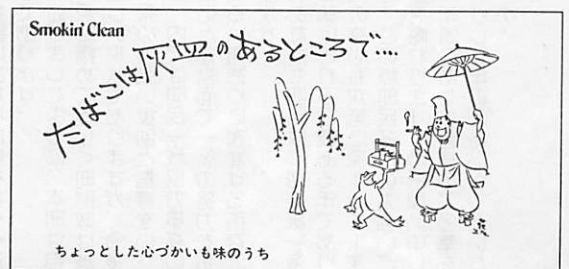 Smokin' Clean
たばこは灰皿のあるところで‥‥
ちょっとした心づかいも味のうち